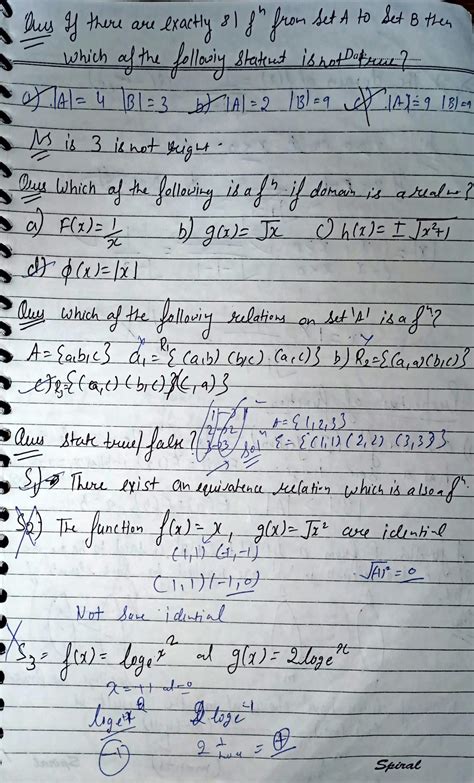 Ques If there are exactly 81 fⁿ from Set A to Set B then
which of the following statment is not true?
a) |A| = 4 |B| = 3 b) |A| = 2 |B| = 9 c) |A| = 9 |B| = 9
is 3 is not right.
Ques Which of the following is a fⁿ if domain is a real no?
a) F(x) = 1/x b) g(x) = √x c) h(x) = ± √x²+1
d) φ(x) = |x|
Ques which of the following relations on set 'A' is a fⁿ?
A = {a,b,c} a) R₁ = { (a,b) (b,c) (a,c)} b) R₂ = {(a,a) (b,c)}
c) R₃ = { (a,c) (b,c) (c,a)}
A = {1,2,3}
Ques state true/false? = {(1,1) (2,2) (3,3)}
S₁ There exist an equivalence relation which is also a fⁿ.
S₂) The function f(x) = x, g(x) = √x² are idential
(1,1) (-1,-1)
(1,1) (-1,0)
Not same idential
S₃ = f(x) = logeˣ² at g(x) = 2 logeˣ
Spiral